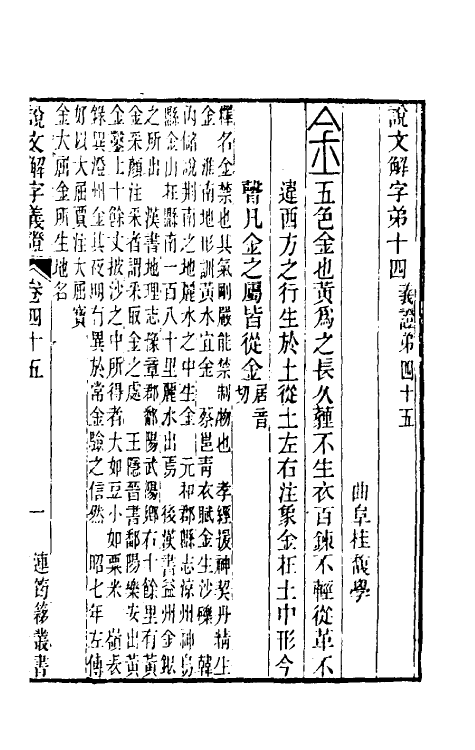 說文解字弟十四 義證弟四十五
曲阜桂馥學
金 五色金也黃爲之長久薶不生衣百鍊不輕從革不
違西方之行生於土從土左右注象金在土中形今
聲凡金之屬皆從金 居音切
釋名金禁也其氣剛嚴能禁制物也 孝經援神契丹精生
金 淮南地形訓黃水宜金 蔡邕靑衣賦金生沙礫 韓
內儲說荆南之地麗水之中生金 元和郡縣志涼州神鳥
縣金山在縣南一百八十里麗水出焉 後漢書益州金銀
之所出 漢書地理志豫章郡鄱陽武陽鄉右十餘里有黃
金采顏注采者謂采取金之處 王隱晉書鄱陽樂安出黃
金鑿土十餘丈披沙之中所得者大如豆小如粟米 嶺表
錄異澄州金其夜明有異於常金驗之信然 昭七年左傳
好以大屈賈注大屈寶
金大屈金所生地名
說文解字義證 卷四十五 一 連筠簃叢書